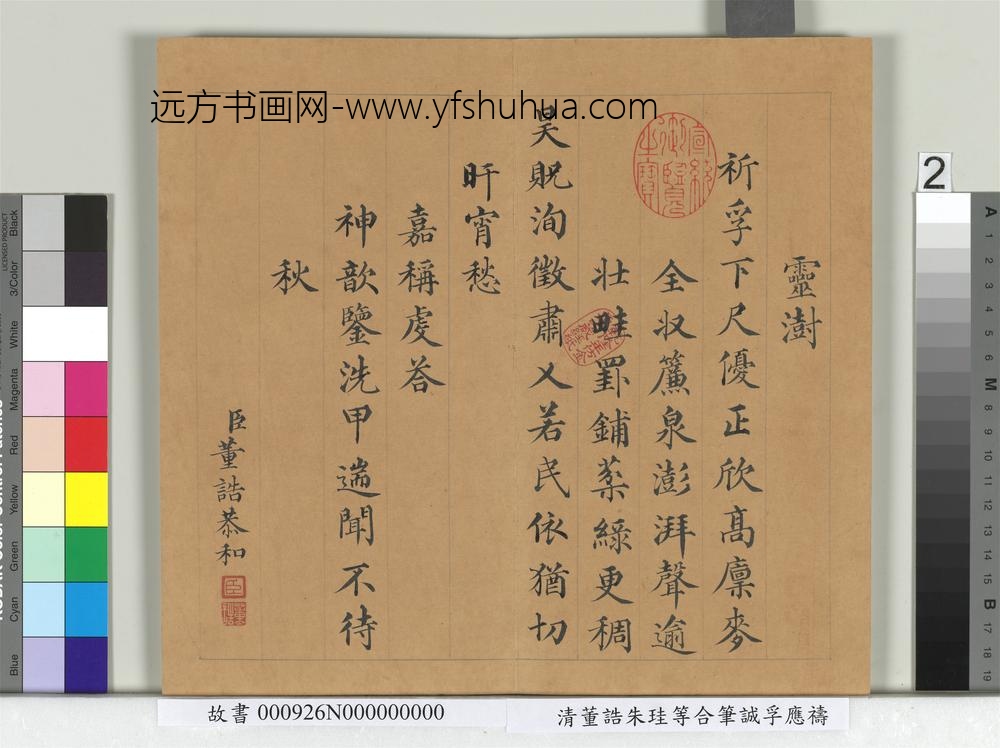 远方书画网-www.yfshuhua.com
靈澍
祈孚下尺優正欣高廩麥
全収簾泉澎湃聲逾
壯畦罫鋪蔂綠更稠
昊貺洵徵肅乂若民依猶切
旰宵愁
嘉稱虔荅
神歆鑒洗甲遄聞不待
秋
臣董誥恭和
宣統御覽之寶
2
LICENSED PRODUCT
Black
3/Color
White
Magenta
Red
Yellow
Green
Cyan
Blue
A
1
2
3
4
5
6
M
8
9
10
11
12
13
14
15
B
17
18
19
故書 000926N000000000
清董誥朱珪等合筆誠孚應禱